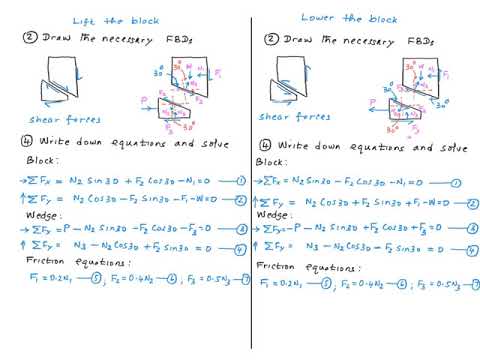 Lift the block
② Draw the necessary FBDs
30° 30° W N₁ F₁ F₂ N₂
P N₂ F₂ N₃ F₃ 30°
shear forces
④ Write down equations and solve
Block:
→ΣFx = N₂ Sin30 + F₂ Cos30 - N₁ = 0 — ①
↑ΣFy = N₂ Cos30 - F₂ Sin30 - F₁ - W = 0 — ②
Wedge:
→ΣFy = P - N₂ Sin30 - F₂ Cos30 - F₃ = 0 — ③
↑ΣFy = N₃ - N₂ Cos30 + F₂ Sin30 = 0 — ④
Friction equations:
F₁ = 0.2N₁ — ⑤ ; F₂ = 0.4N₂ — ⑥ ; F₃ = 0.5N₃ — ⑦
Lower the block
② Draw the necessary FBDs
30° 30° W N₁ F₁ F₂ N₂
P N₂ F₂ N₃ F₃ 30°
shear forces
④ Write down equations and solve
Block:
→ΣFx = N₂ Sin30 - F₂ Cos30 - N₁ = 0 — ①
↑ΣFy = N₂ Cos30 + F₂ Sin30 + F₁ - W = 0 — ②
Wedge:
→ΣFy = -P - N₂ Sin30 + F₂ Cos30 + F₃ = 0 — ③
↑ΣFy = N₃ - N₂ Cos30 - F₂ Sin30 = 0 — ④
Friction equations:
F₁ = 0.2N₁ — ⑤ ; F₂ = 0.4N₂ — ⑥ ; F₃ = 0.5N₃ — ⑦